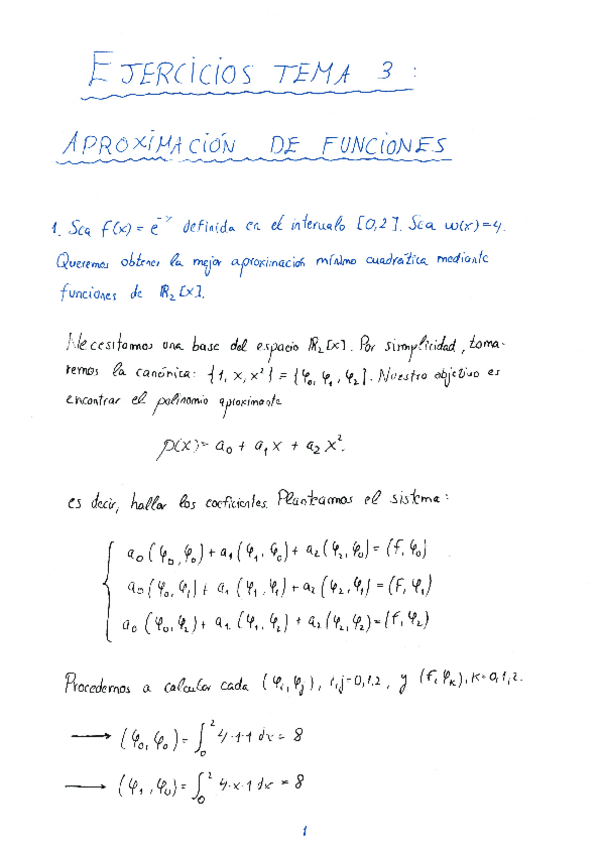 EJERCICIOS TEMA 3:
APROXIMACIÓN DE FUNCIONES
1. Sea f(x) = e^{-x} definida en el intervalo [0,2]. Sea w(x)=4.
Queremos obtener la mejor aproximación mínimo cuadrática mediante
funciones de ℝ₂[x].
Necesitamos una base del espacio ℝ₂[x]. Por simplicidad, toma-
remos la canónica: {1, x, x²} = {φ₀, φ₁, φ₂}. Nuestro objetivo es
encontrar el polinomio aproximante
p(x) = a₀ + a₁x + a₂x².
es decir, hallar los coeficientes. Planteamos el sistema:
a₀(φ₀,φ₀) + a₁(φ₁,φ₀) + a₂(φ₂,φ₀) = (f,φ₀)
a₀(φ₀,φ₁) + a₁(φ₁,φ₁) + a₂(φ₂,φ₁) = (f,φ₁)
a₀(φ₀,φ₂) + a₁(φ₁,φ₂) + a₂(φ₂,φ₂) = (f,φ₂)
Procedemos a calcular cada (φᵢ,φⱼ), i,j=0,1,2, y (f,φₖ), k=0,1,2.
→ (φ₀,φ₀) = ∫₀² 4·1·1 dx = 8
→ (φ₁,φ₀) = ∫₀² 4·x·1 dx = 8
1